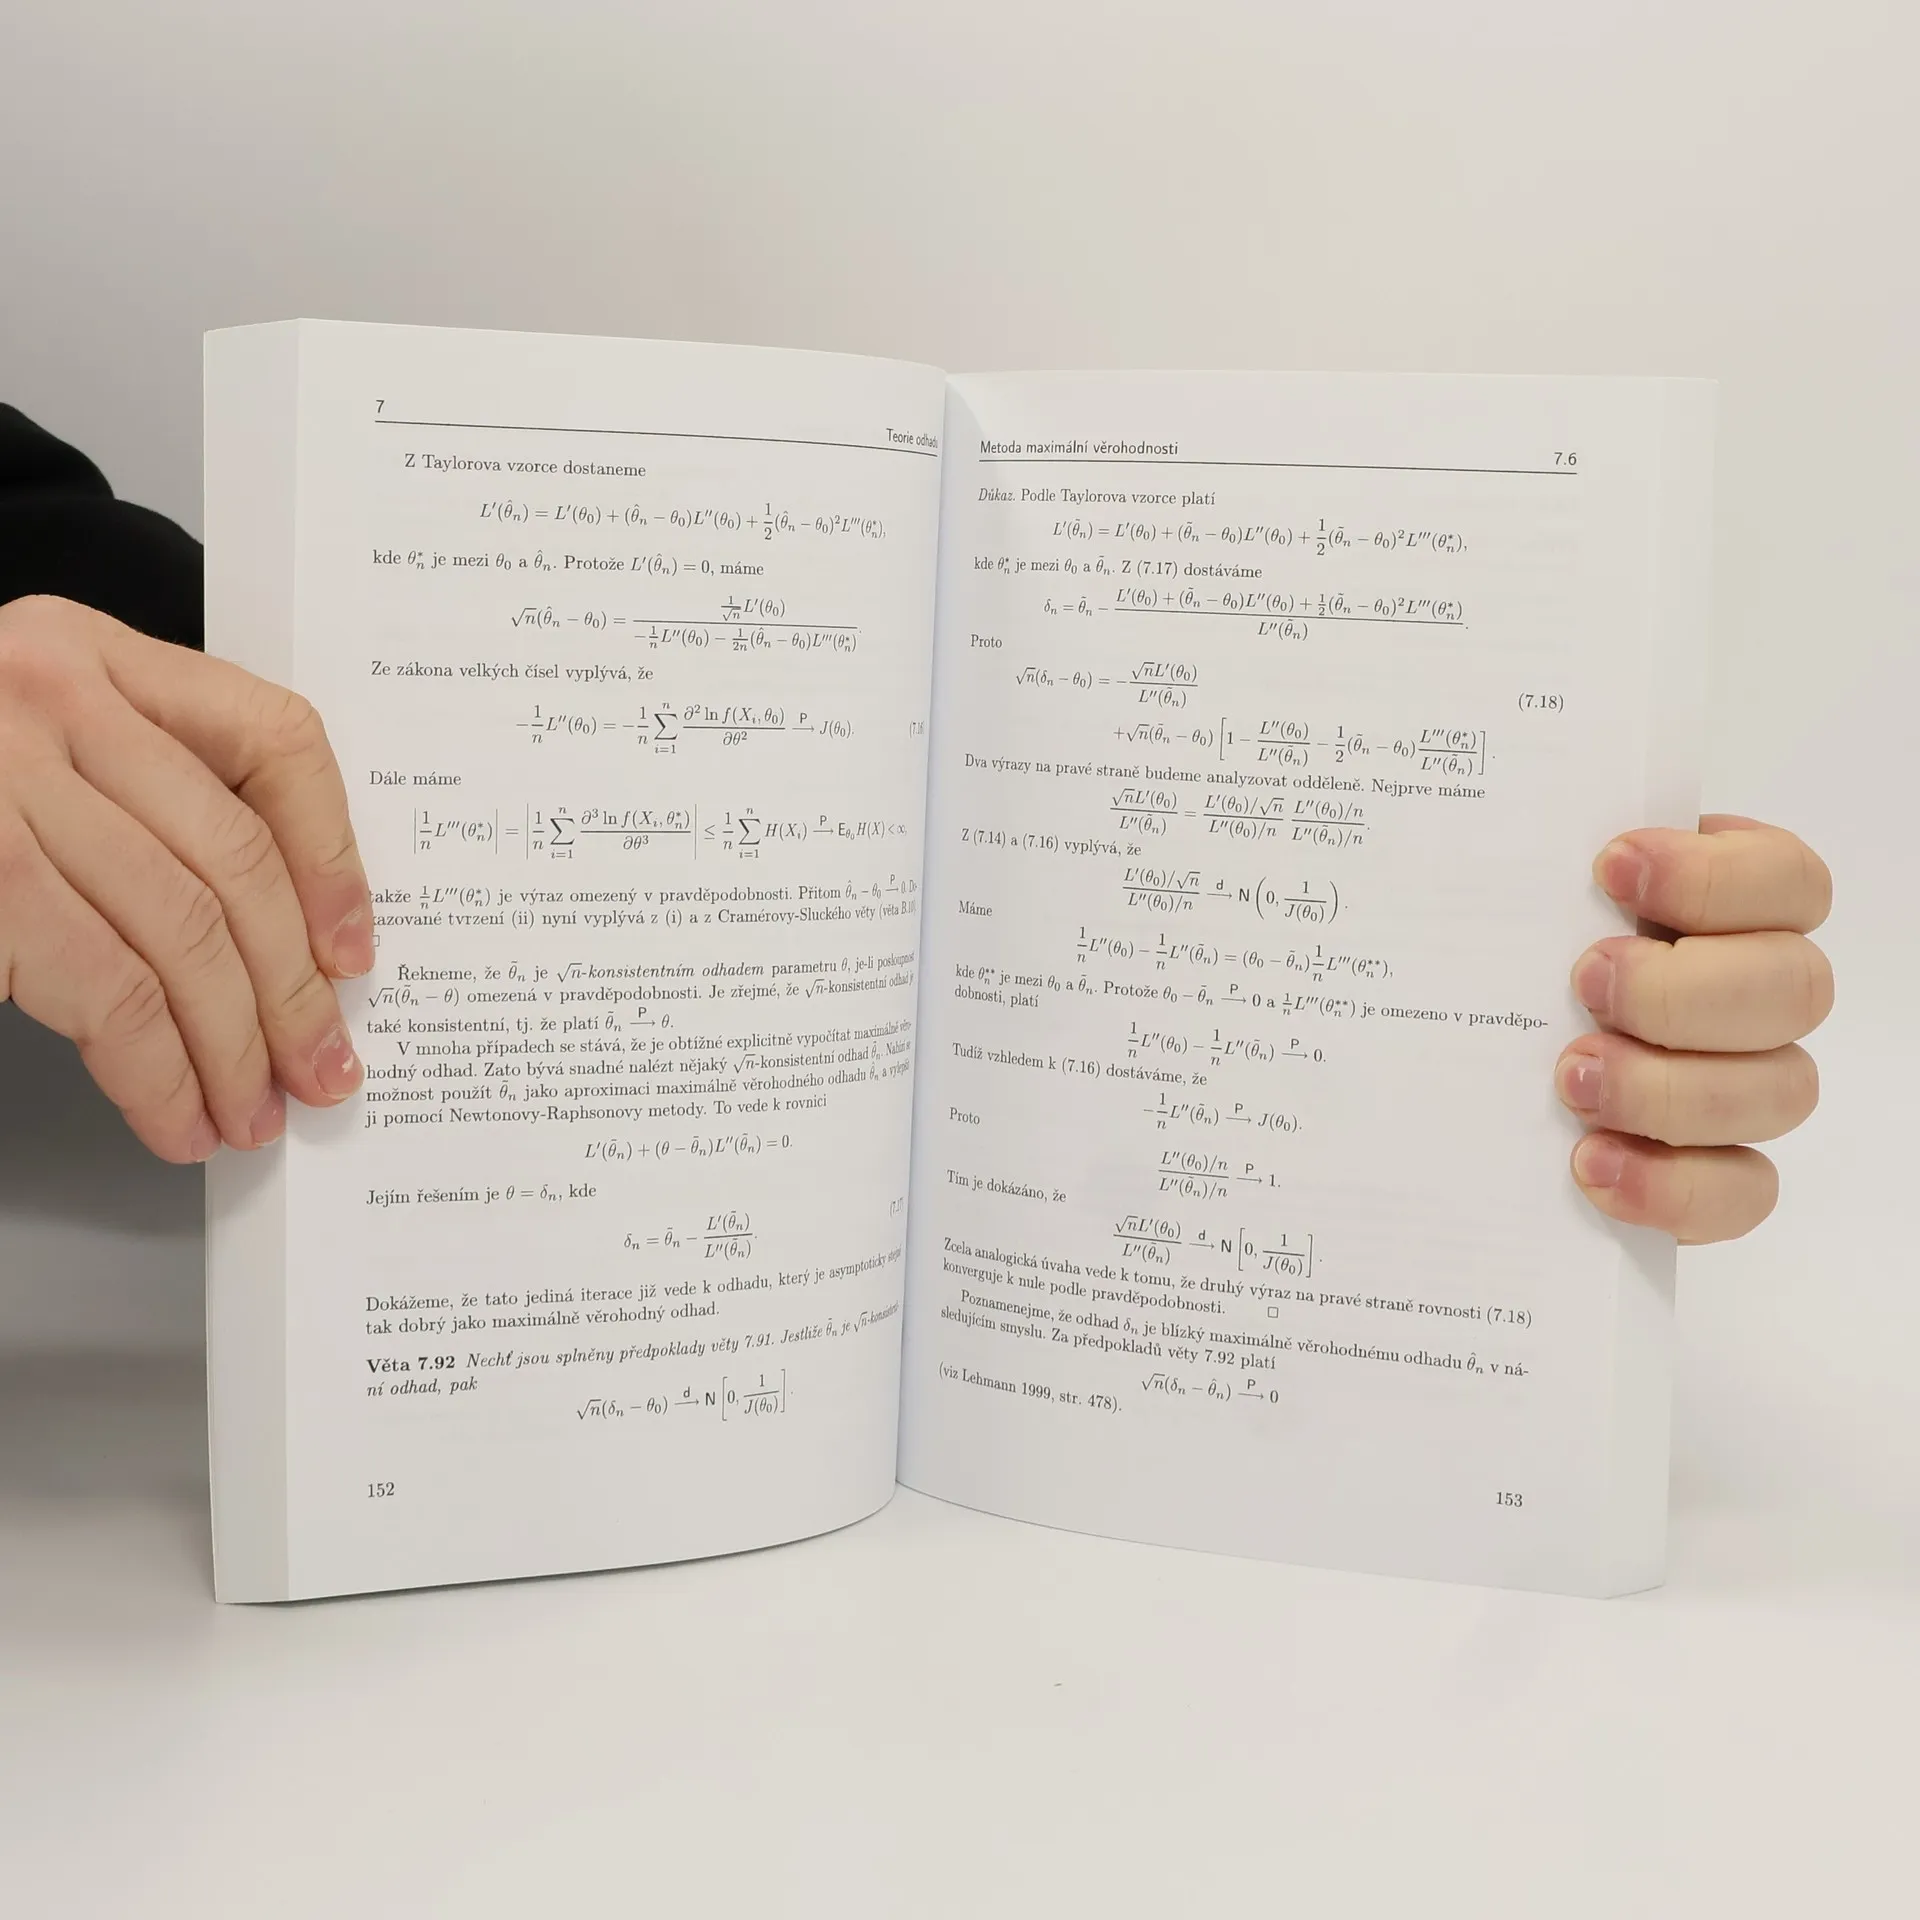 7
Teorie odhadu
Z Taylorova vzorce dostaneme
L′(θ̂ₙ) = L′(θ₀) + (θ̂ₙ − θ₀)L″(θ₀) + ½(θ̂ₙ − θ₀)²L‴(θₙ*),
kde θₙ* je mezi θ₀ a θ̂ₙ. Protože L′(θ̂ₙ) = 0, máme
√n(θ̂ₙ − θ₀) = (1/√n L′(θ₀)) / (−1/n L″(θ₀) − 1/2n (θ̂ₙ − θ₀)L‴(θₙ*)).
Ze zákona velkých čísel vyplývá, že
−1/n L″(θ₀) = −1/n ∑ᵢ₌₁ⁿ ∂² ln f(Xᵢ, θ₀)/∂θ² —P→ J(θ₀). (7.16
Dále máme
|1/n L‴(θₙ*)| = |1/n ∑ᵢ₌₁ⁿ ∂³ ln f(Xᵢ, θₙ*)/∂θ³| ≤ 1/n ∑ᵢ₌₁ⁿ H(Xᵢ) —P→ E_θ₀ H(X) < ∞,
takže 1/n L‴(θₙ*) je výraz omezený v pravděpodobnosti. Přitom θ̂ₙ − θ₀ —P→ 0. Do-
kazované tvrzení (ii) nyní vyplývá z (i) a z Cramérovy-Sluckého věty (věta B.10).
□
Řekneme, že θ̃ₙ je √n-konsistentním odhadem parametru θ, je-li posloupnost
√n(θ̃ₙ − θ) omezená v pravděpodobnosti. Je zřejmé, že √n-konsistentní odhad je
také konsistentní, tj. že platí θ̃ₙ —P→ θ.
V mnoha případech se stává, že je obtížné explicitně vypočítat maximálně věro-
hodný odhad. Zato bývá snadné nalézt nějaký √n-konsistentní odhad θ̃ₙ. Nabízí se
možnost použít θ̃ₙ jako aproximaci maximálně věrohodného odhadu θ̂ₙ a vylepšit
ji pomocí Newtonovy-Raphsonovy metody. To vede k rovnici
L′(θ̃ₙ) + (θ − θ̃ₙ)L″(θ̃ₙ) = 0.
Jejím řešením je θ = δₙ, kde
δₙ = θ̃ₙ − L′(θ̃ₙ)/L″(θ̃ₙ). (7.17)
Dokážeme, že tato jediná iterace již vede k odhadu, který je asymptoticky stejně
tak dobrý jako maximálně věrohodný odhad.
Věta 7.92 Nechť jsou splněny předpoklady věty 7.91. Jestliže θ̃ₙ je √n-konsistent-
ní odhad, pak
√n(δₙ − θ₀) —d→ N[0, 1/J(θ₀)].
152
Metoda maximální věrohodnosti 7.6
Důkaz. Podle Taylorova vzorce platí
L′(θ̃ₙ) = L′(θ₀) + (θ̃ₙ − θ₀)L″(θ₀) + ½(θ̃ₙ − θ₀)²L‴(θₙ*),
kde θₙ* je mezi θ₀ a θ̃ₙ. Z (7.17) dostáváme
δₙ = θ̃ₙ − (L′(θ₀) + (θ̃ₙ − θ₀)L″(θ₀) + ½(θ̃ₙ − θ₀)²L‴(θₙ*)) / L″(θ̃ₙ).
Proto
√n(δₙ − θ₀) = −√nL′(θ₀)/L″(θ̃ₙ) (7.18)
+√n(θ̃ₙ − θ₀)[1 − L″(θ₀)/L″(θ̃ₙ) − ½(θ̃ₙ − θ₀) L‴(θₙ*)/L″(θ̃ₙ)].
Dva výrazy na pravé straně budeme analyzovat odděleně. Nejprve máme
√nL′(θ₀)/L″(θ̃ₙ) = (L′(θ₀)/√n)/(L″(θ₀)/n) (L″(θ₀)/n)/(L″(θ̃ₙ)/n).
Z (7.14) a (7.16) vyplývá, že
(L′(θ₀)/√n)/(L″(θ₀)/n) —d→ N(0, 1/J(θ₀)).
Máme
1/n L″(θ₀) − 1/n L″(θ̃ₙ) = (θ₀ − θ̃ₙ) 1/n L‴(θₙ**),
kde θₙ** je mezi θ₀ a θ̃ₙ. Protože θ₀ − θ̃ₙ —P→ 0 a 1/n L‴(θₙ**) je omezeno v pravděpo-
dobnosti, platí
1/n L″(θ₀) − 1/n L″(θ̃ₙ) —P→ 0.
Tudíž vzhledem k (7.16) dostáváme, že
−1/n L″(θ̃ₙ) —P→ J(θ₀).
Proto
(L″(θ₀)/n)/(L″(θ̃ₙ)/n) —P→ 1.
Tím je dokázáno, že
√nL′(θ₀)/L″(θ̃ₙ) —d→ N[0, 1/J(θ₀)].
Zcela analogická úvaha vede k tomu, že druhý výraz na pravé straně rovnosti (7.18)
konverguje k nule podle pravděpodobnosti. □
Poznamenejme, že odhad δₙ je blízký maximálně věrohodnému odhadu θ̂ₙ v ná-
sledujícím smyslu. Za předpokladů věty 7.92 platí
√n(δₙ − θ̂ₙ) —P→ 0
(viz Lehmann 1999, str. 478).
153